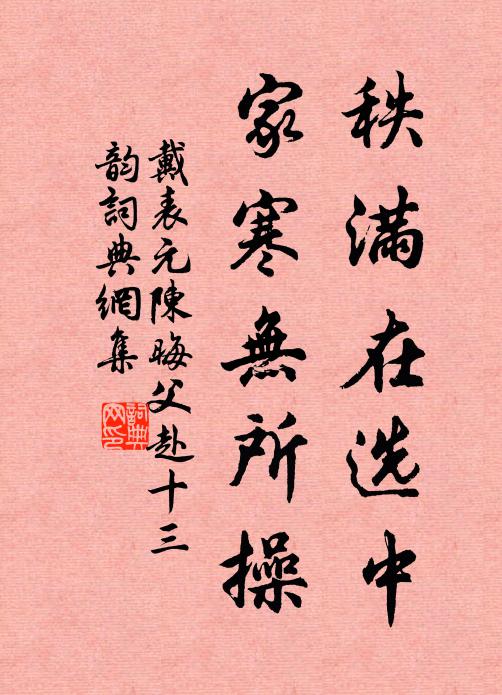 秩滿在选中
家寒無所操
戴表元陳晦父赴十三
韵詞典網集
詞典
网印